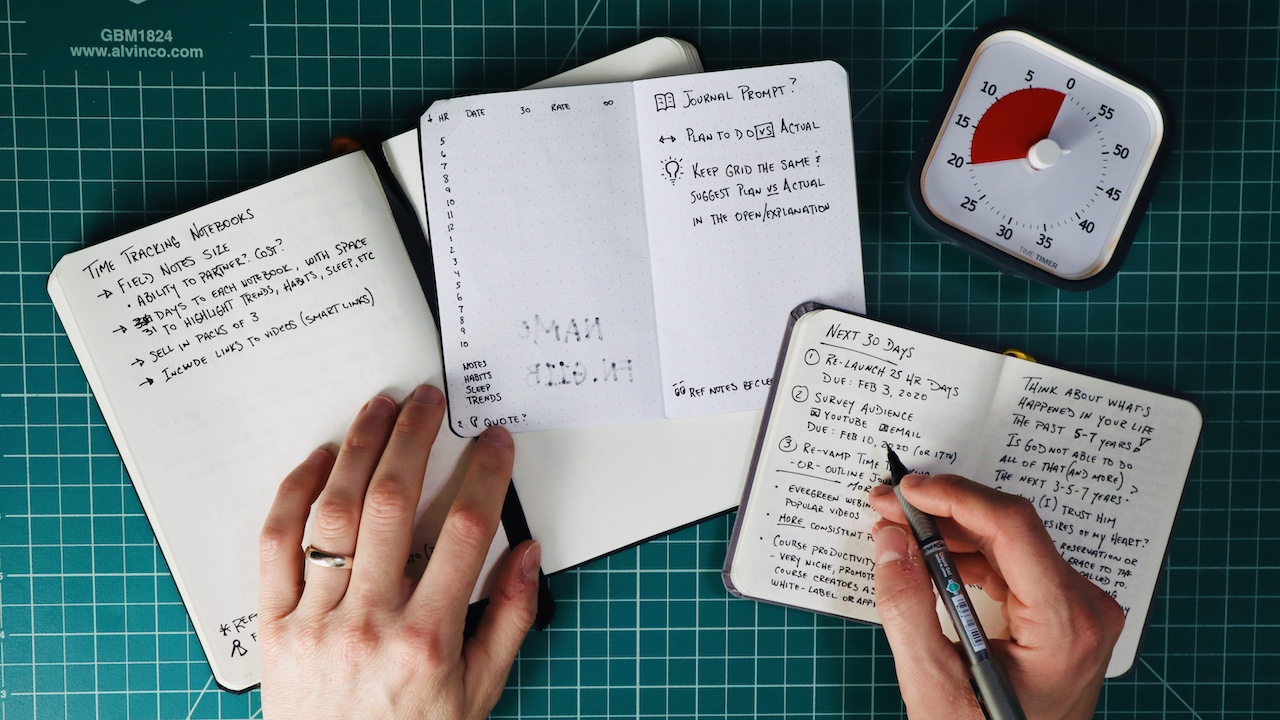 GBM1824
www.alvinco.com
TIME TRACKING NOTEBOOKS
→ FIELD NOTES SIZE
• ABILITY TO PARTNER? COST?
→ DAYS TO EACH NOTEBOOK, WITH SPACE
31 TO HIGHLIGHT TRENDS, HABITS, SLEEP, ETC
→ SELL IN PACKS OF 3
→ INCLUDE LINKS TO VIDEOS (SMART LINKS)
↓ HR DATE 30 RATE 00
5
6
7
8
9
10
11
12
1
2
3
4
5
6
7
8
9
10
NOTES
HABITS
SLEEP
TRENDS
QUOTE?
JOURNAL PROMPT?
↔ PLAN TO DO VS ACTUAL
KEEP GRID THE SAME &
SUGGEST PLAN VS ACTUAL
IN THE OPEN/EXPLANATION
REF NOTES
0
55
50
45
40
35
30
25
20
15
10
5
TIME TIMER
NEXT 30 DAYS
① RE-LAUNCH 25 HR DAYS
DUE: FEB 3, 2020
② SURVEY AUDIENCE
☒ YOUTUBE ☒ EMAIL
DUE: FEB 10, 2020 (OR 17TH)
③ RE-VAMP TIME
-OR- OUTLINE
• EVERGREEN
POPULAR VIDEOS
• MORE CONSISTENT
• COURSE PRODUCTIVITY
- VERY NICHE, PROMOTE
COURSE CREATORS
WHITE-LABEL OR
THINK ABOUT WHAT'S
HAPPENED IN YOUR LIFE
THE PAST 5-7 YEARS!
IS GOD NOT ABLE TO DO
ALL OF THAT (AND MORE)
THE NEXT 3-5-7 YEARS?
(I) TRUST HIM
DESIRES OF MY HEART?
RESERVATION OR
GRACE TO
TO.